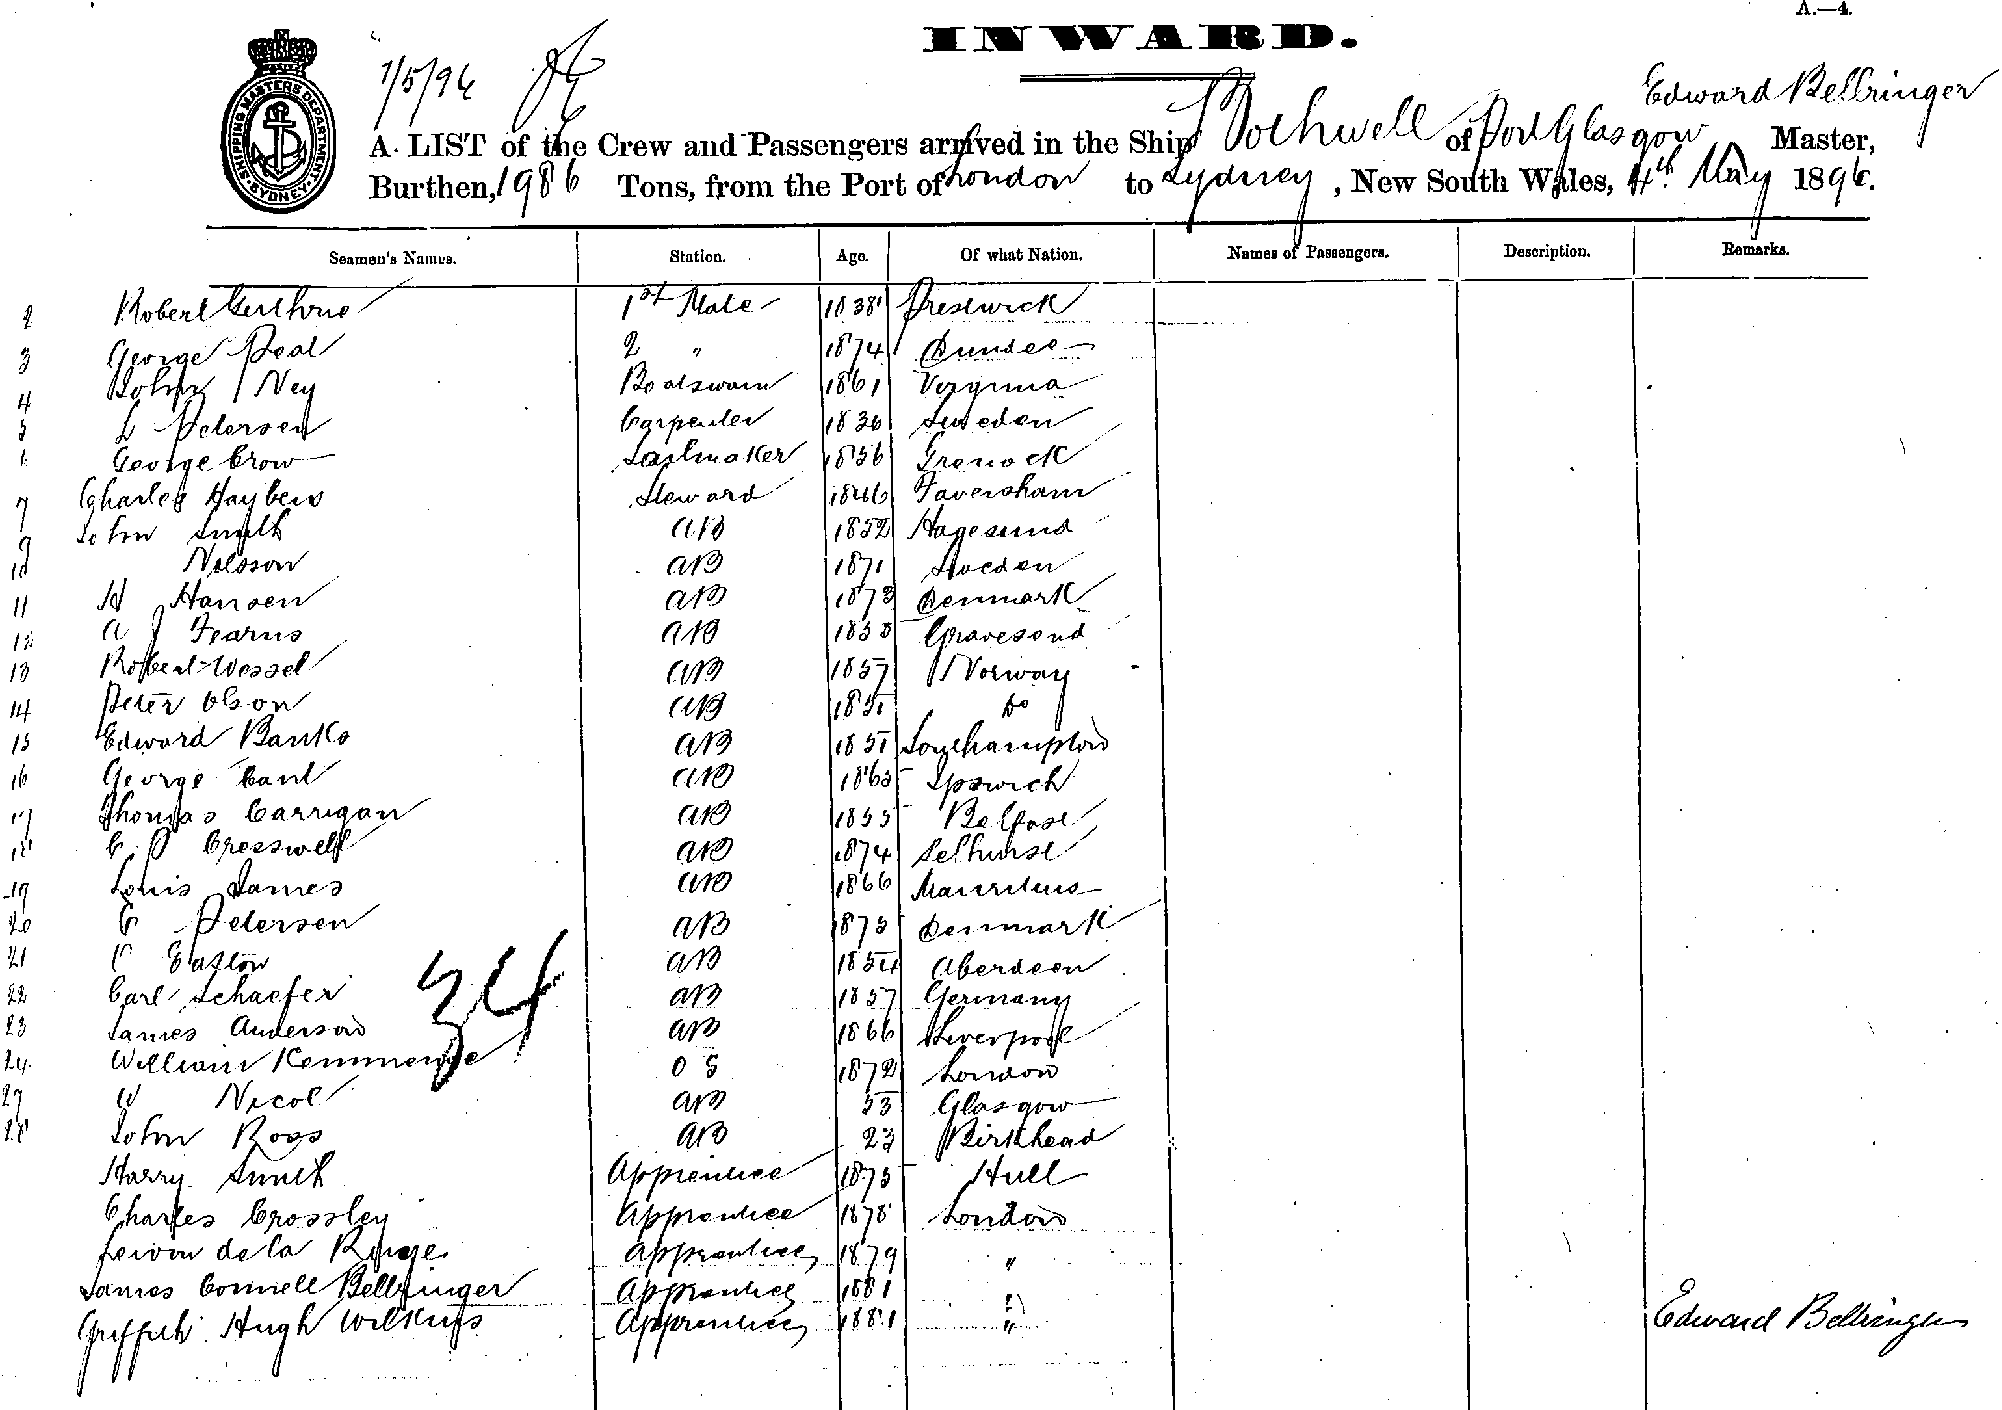 A.—4.
INWARD.
7/5/96
Edward Bellringer
A LIST of the Crew and Passengers arrived in the Ship Bothwell of Port Glasgow Master,
Burthen, 1986 Tons, from the Port of London to Sydney, New South Wales, 4th May 1896.
SHIPPING MASTERS DEPARTMENT SYDNEY
Seamen's Names. Station. Age. Of what Nation. Names of Passengers. Description. Remarks.
2 Robert Guthrie 1st Mate 1838 Prestwick
3 George Peat 2 " 1874 Dundee
4 John Ney Boatswain 1861 Virginia
5 L Petersen Carpenter 1836 Sweden
George Crow Sailmaker 1856 Grenock
7 Charles Haybers Steward 1846 Faversham
9 John Smith AB 1852 Hagesund
10 Nelsson AB 1871 Sweden
11 H Hansen AB 1873 Denmark
12 A J Fearns AB 1858 Gravesend
13 Robert Wessel AB 1857 Norway
14 Peter Olson AB 1851 Do
15 Edward Banks AB 1851 Southampton
16 George Cant AB 1863 Ipswich
17 Thomas Carrigan AB 1855 Belfast
18 C P Cresswell AB 1874 Selhurst
19 Louis James AB 1866 Mauritius
20 C Petersen AB 1875 Denmark
21 Easton AB 1854 Aberdeen
22 Carl Schaefer AB 1857 Germany
23 James Anderson AB 1866 Liverpool
24 William OS 1872 London
34
27 W Nicol AB 53 Glasgow
28 John Ross AB 23 Birkhead
Harry Smith Apprentice 1875 Hull
Charles Crossley Apprentice 1878 London
de la Apprentice 1879 "
James Connell Bellringer Apprentice 1881 "
Griffith Hugh Wilkins Apprentice 1881 "
Edward Bellringer